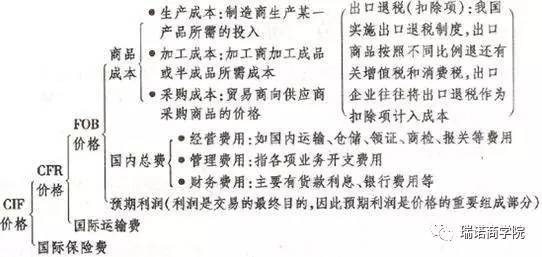 ● 生产成本:制造商生产某一
产品所需的投入
商品
成本
● 加工成本:加工商加工成品
或半成品所需成本
● 采购成本:贸易商向供应商
采购商品的价格
出口退税(扣除项):我国
实施出口退税制度,出口
商品按照不同比例退还有
关增值税和消费税,出口
企业往往将出口退税作为
扣除项计入成本
FOB
价格
国内总费
● 经营费用:如国内运输、仓储、领证、商检、报关等费用
● 管理费用:指各项业务开支费用
● 财务费用:主要有贷款利息、银行费用等
CFR
价格
预期利润(利润是交易的最终目的,因此预期利润是价格的重要组成部分)
CIF
价格
国际运输费
国际保险费
瑞诺商学院